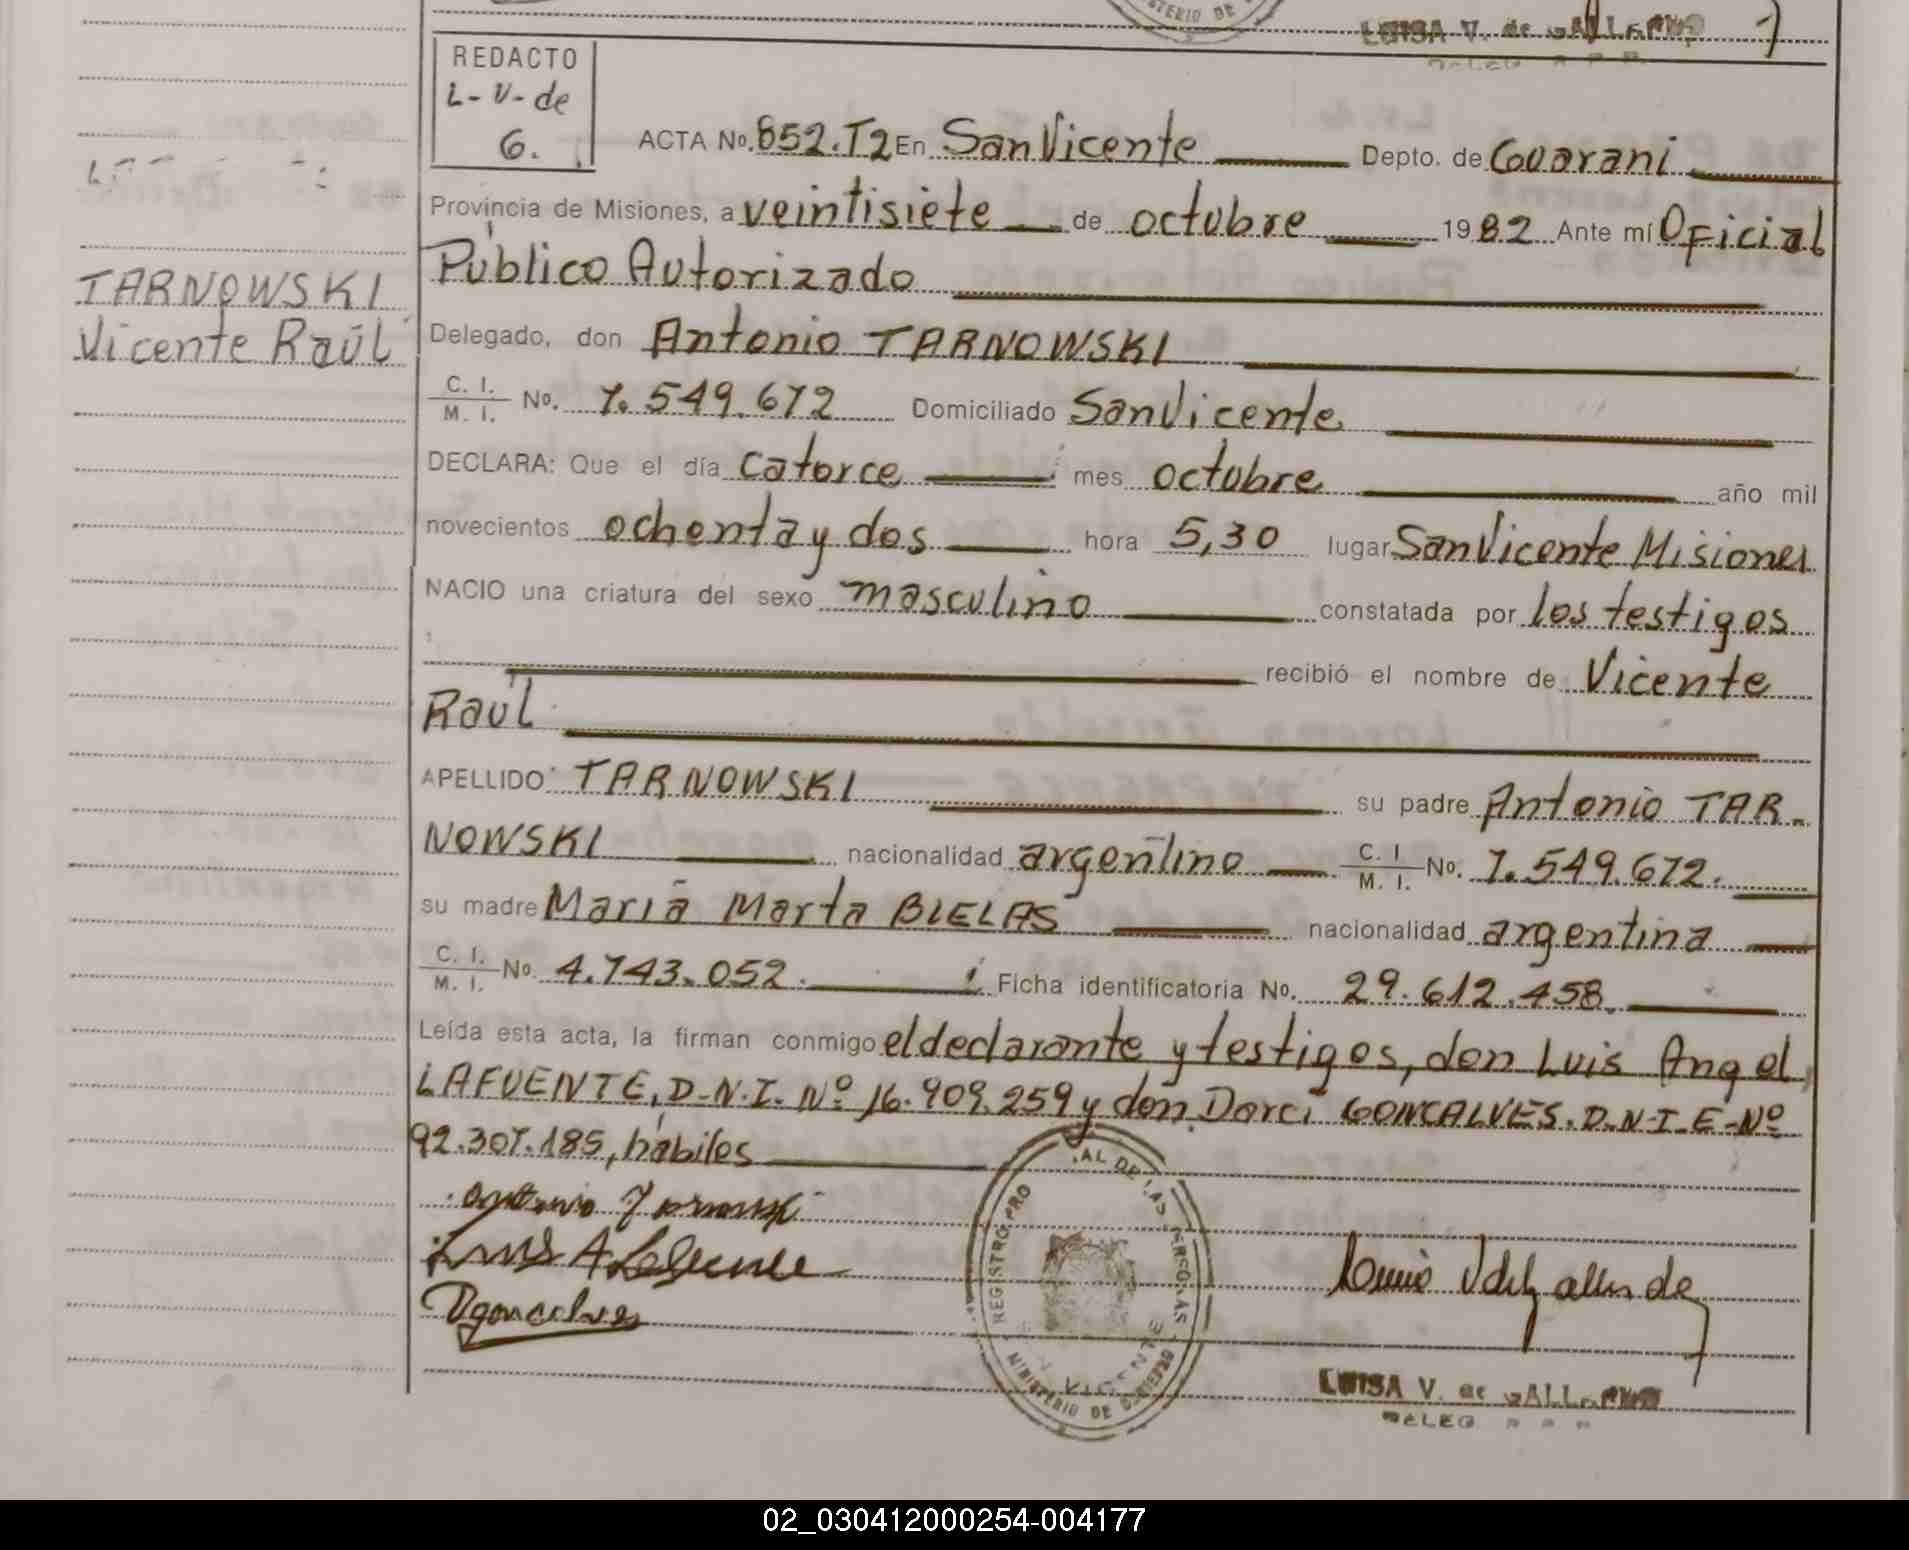 LUISA V. de GALLARDO
REDACTO
L-V-de
G.
ACTA No. 852.T2 En San Vicente Depto. de Guarani
Provincia de Misiones, a veintisiete de octubre 1982 Ante mí Oficial
Público Autorizado
TARNOWSKI
Vicente Raúl
Delegado, don Antonio TARNOWSKI
C. I. / M. I. No. 7.549.672 Domiciliado San Vicente
DECLARA: Que el día catorce mes octubre año mil
novecientos ochenta y dos hora 5,30 lugar San Vicente Misiones
NACIO una criatura del sexo masculino constatada por los testigos
recibió el nombre de Vicente
Raúl
APELLIDO: TARNOWSKI su padre Antonio TAR-
NOWSKI nacionalidad argentino C. I / M. I. No. 7.549.672.
su madre María Marta BIELAS nacionalidad argentina
C. I. / M. I. No. 4.743.052. Ficha identificatoria No. 29.612.458.
Leída esta acta, la firman conmigo el declarante y testigos, don Luis Angel
LAFUENTE, D-N-I. Nº 16.909.259 y don Dorci GONCALVES. D-N-I-E-Nº
92.307.185, hábiles
Antonio Tarnowski
Luis A Lafuente
Dgoncalves
REGISTRO PRO AL DE LAS PERSONAS
MINISTERIO DE GOBIERNO
VICENTE
LUISA V. de GALLARDO
DELEG
02_030412000254-004177